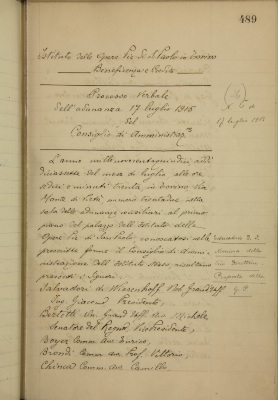 489
Istituto delle Opere Pie di S. Paolo in Torino
Beneficenza e Credito
Processo Verbale
dell'adunanza 17 luglio 1915
del
Consiglio di Amministraz.ne
17 luglio 1915
L'anno millenovecentoquindici addì
diciassette del mese di luglio alle ore
e minuti trenta in Torino, Via
Monte di Pietà numero trentadue nella
sala delle adunanze consiliari al primo
piano del palazzo dell'Istituto delle
Opere Pie di San Paolo, convocatosi nelle
prescritte forme il Consiglio di Ammi-
nistrazione dell'Istituto stesso,
presenti i Signori:
Salvadori di Wiesenhoff Nob. Grand'Uff.
Ing. Giacomo Presidente,
Biscotti Grand'Uff. Michele
Senatore del Regno, Vice Presidente,
Boyer Comm. Avv. Enrico,
Brondi Comm. Avv. Prof. Vittorio
Chiesa Comm. Avv. Camillo